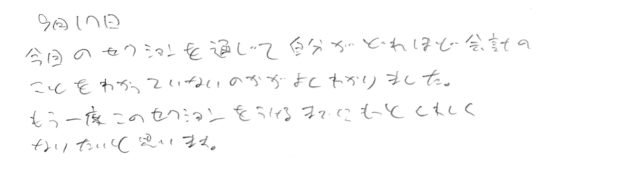 今回のセクションを通じて自分がどれほど会計の
ことをわかっていないのかがよくわかりました。
もう一度このセクションをうけるまでにもっとくわしく
なりたいと思います。